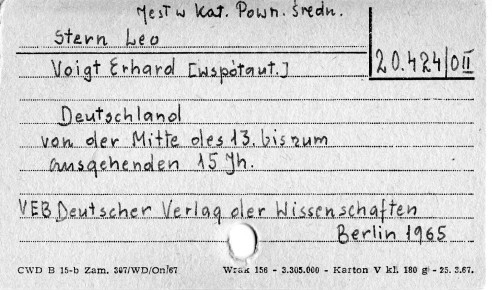 Jest w Kat. Pown. Średn.
Stern Leo
Voigt Erhard [współaut.]
20.424/OII
Deutschland
von der Mitte des 13. bis zum
ausgehenden 15 Jh.
VEB Deutscher Verlag der Wissenschaften
Berlin 1965
CWD B 15-b Zam. 397/WD/On/67 Wzak 156 - 3.305.000 - Karton V kl. 180 g - 25.3.67.